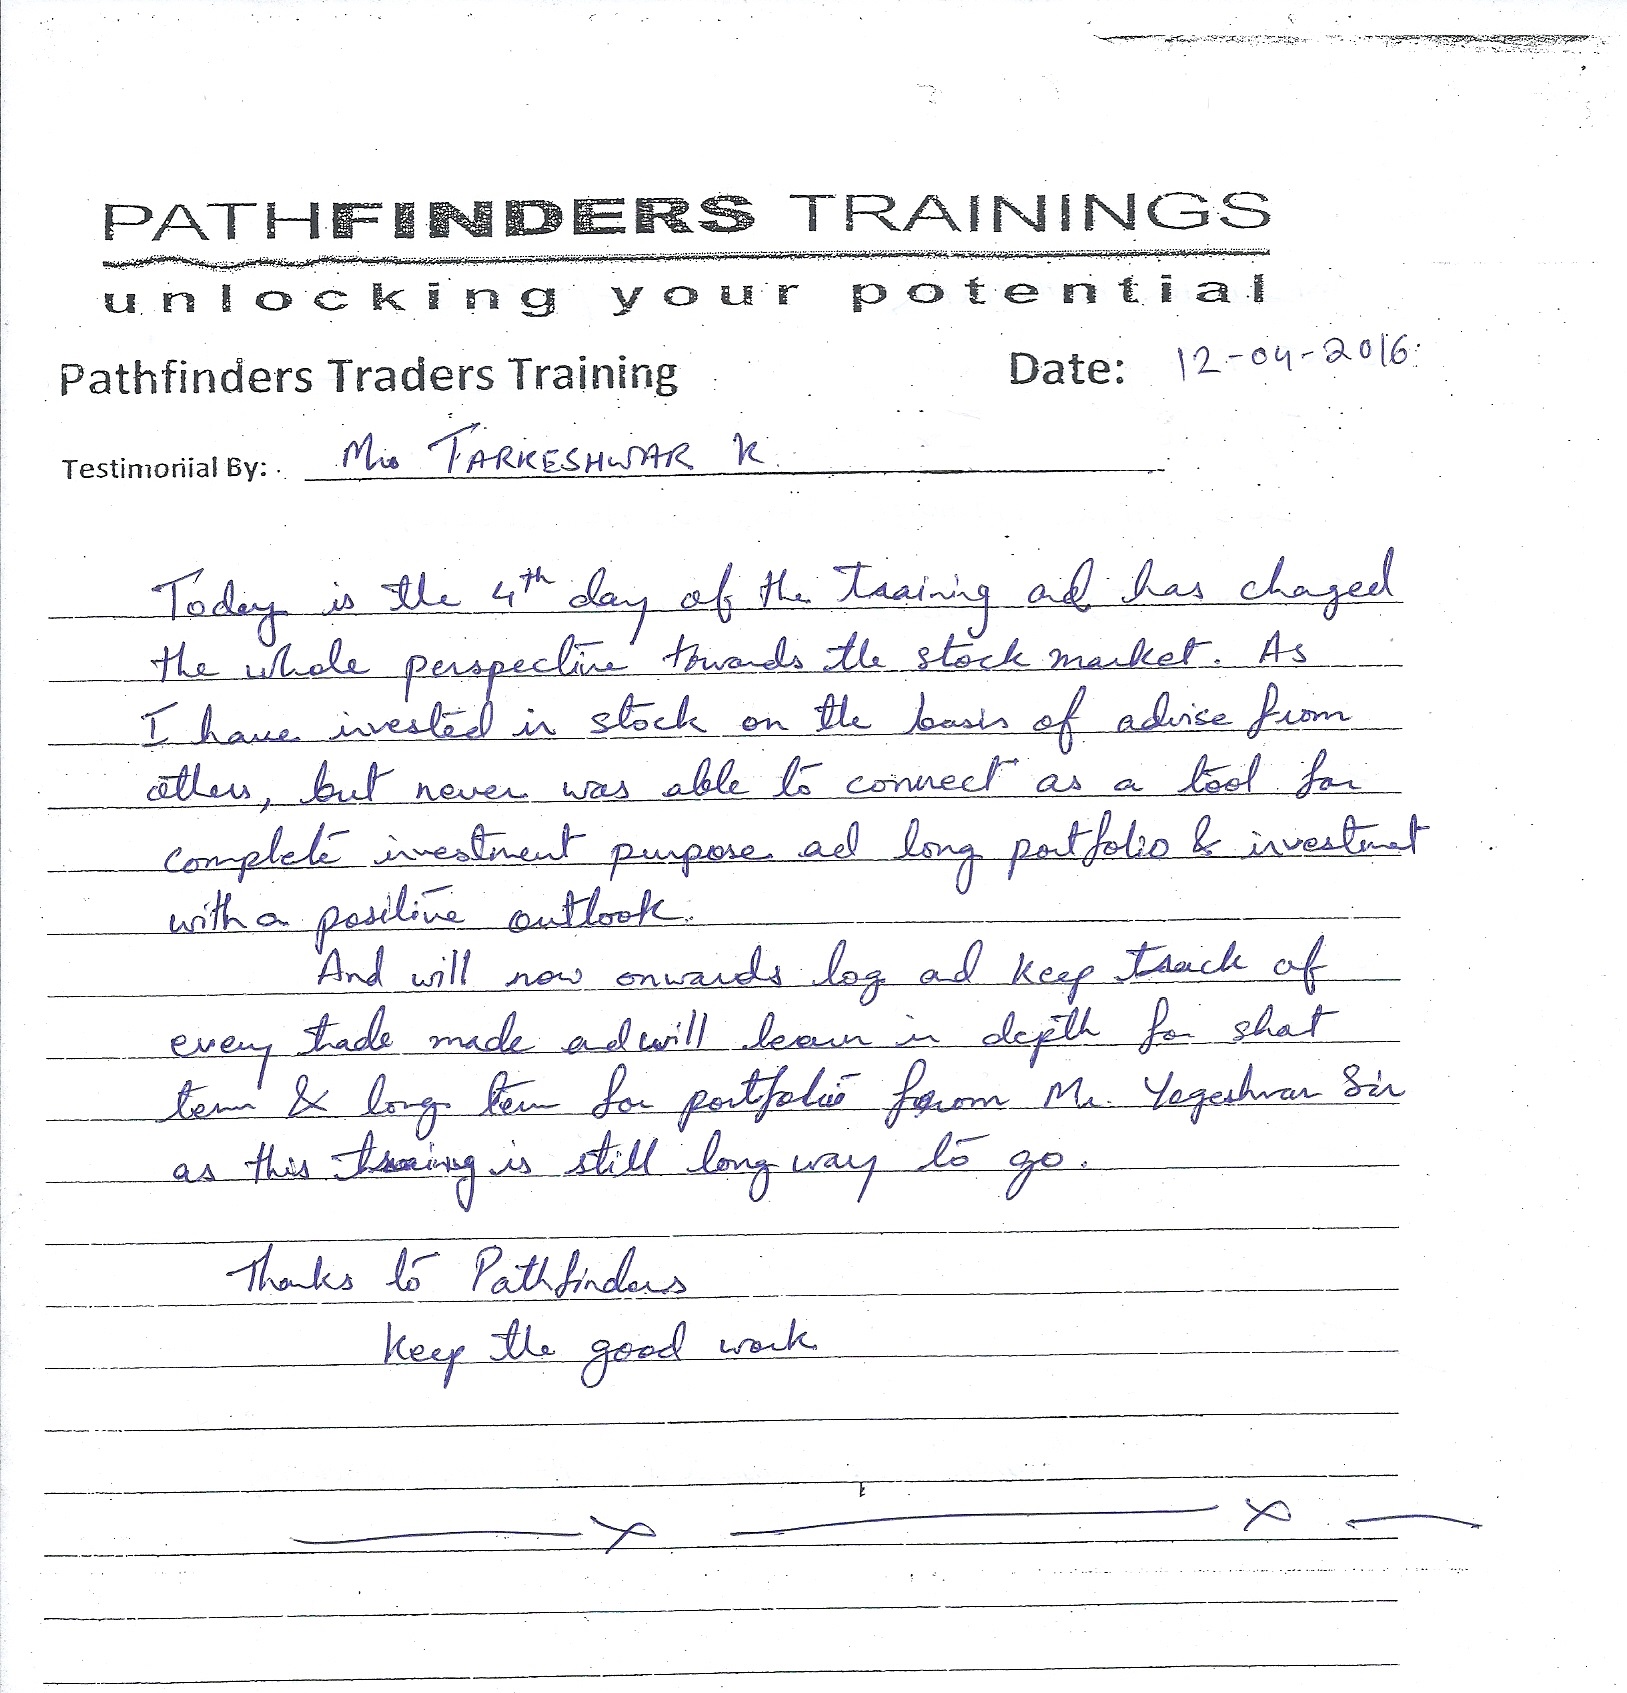 PATHFINDERS TRAININGS
unlocking your potential
Pathfinders Traders Training Date: 12-04-2016
Testimonial By: Mrs TARKESHWAR K
Today is the 4th day of the training ad has chaged
the whole perspective towards the stock market. As
I have invested in stock on the basis of advise from
others, but never was able to connect as a tool for
complete investment purpose ad long portfolio & investmet
with a positive outlook.
And will now onwards log ad keep track of
every trade made ad will learn in depth for short
term & long term for portfolio from Mr. Yogeshwar Sir
as this traing is still long way to go.
Thanks to Pathfinders
Keep the good work